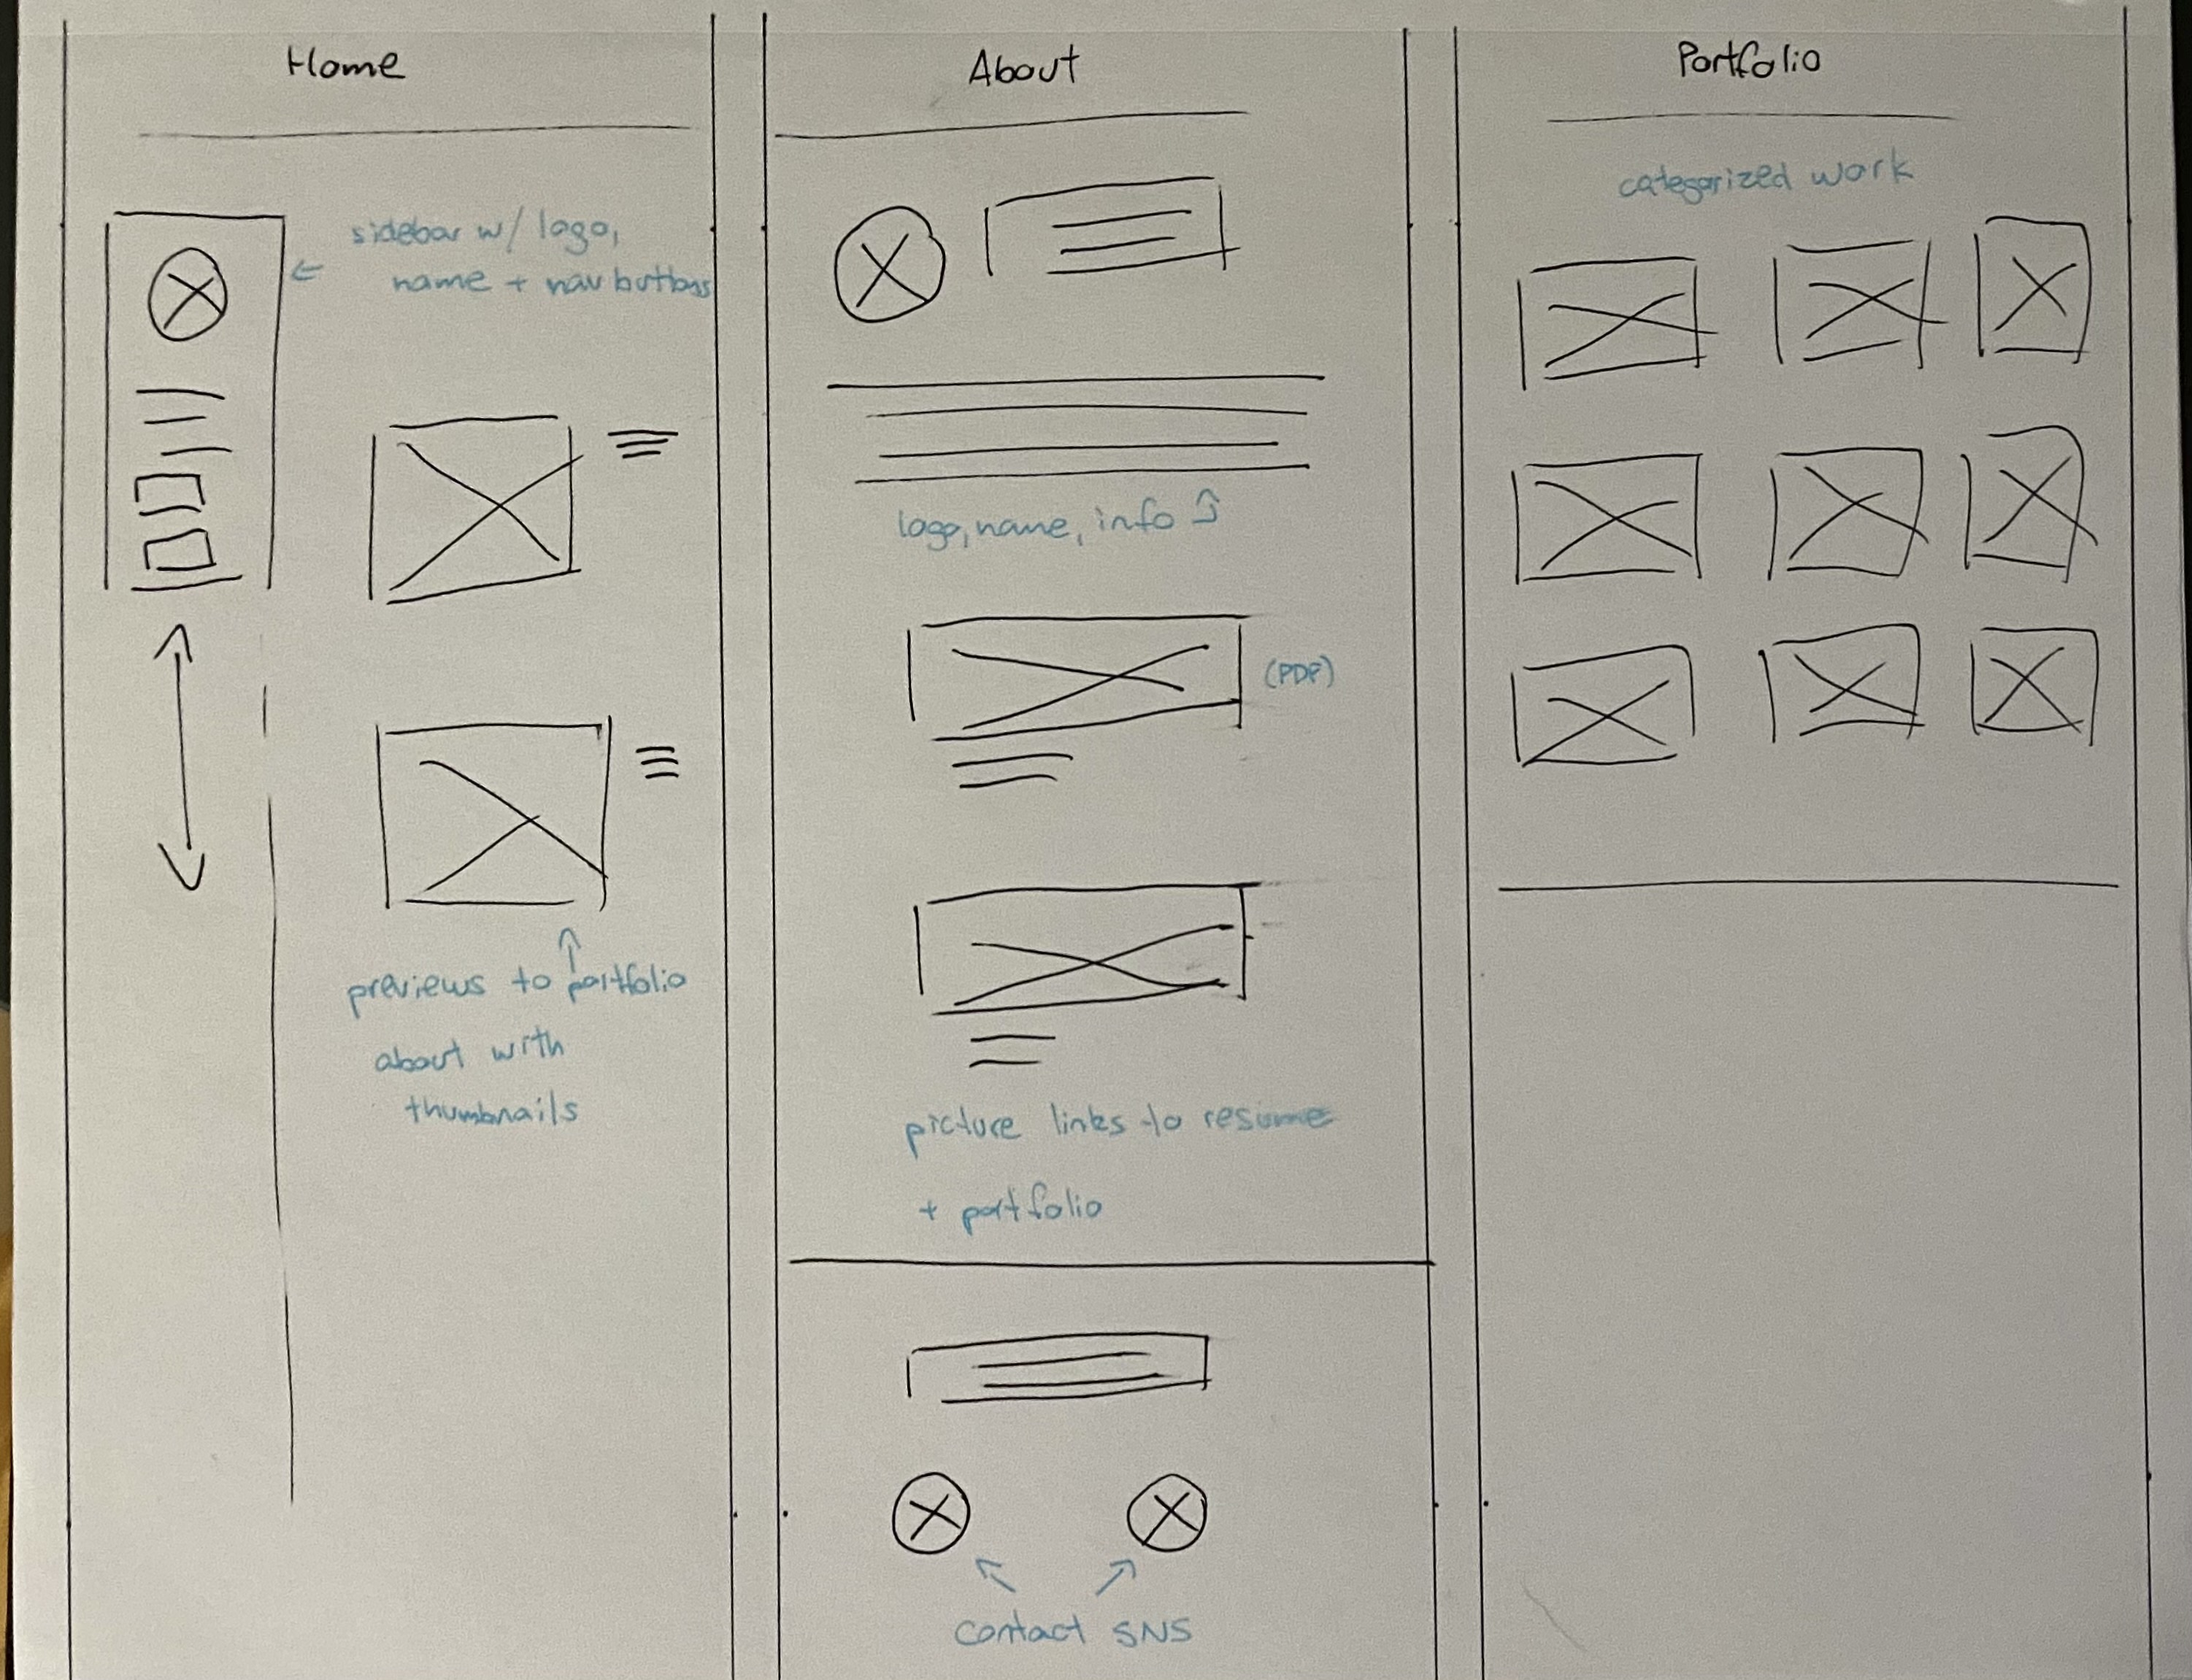 Home
sidebar w/ logo,
name + nav buttons
previews to portfolio
about with
thumbnails
About
logo, name, info
(PDF)
picture links to resume
+ portfolio
contact SNS
Portfolio
categorized work